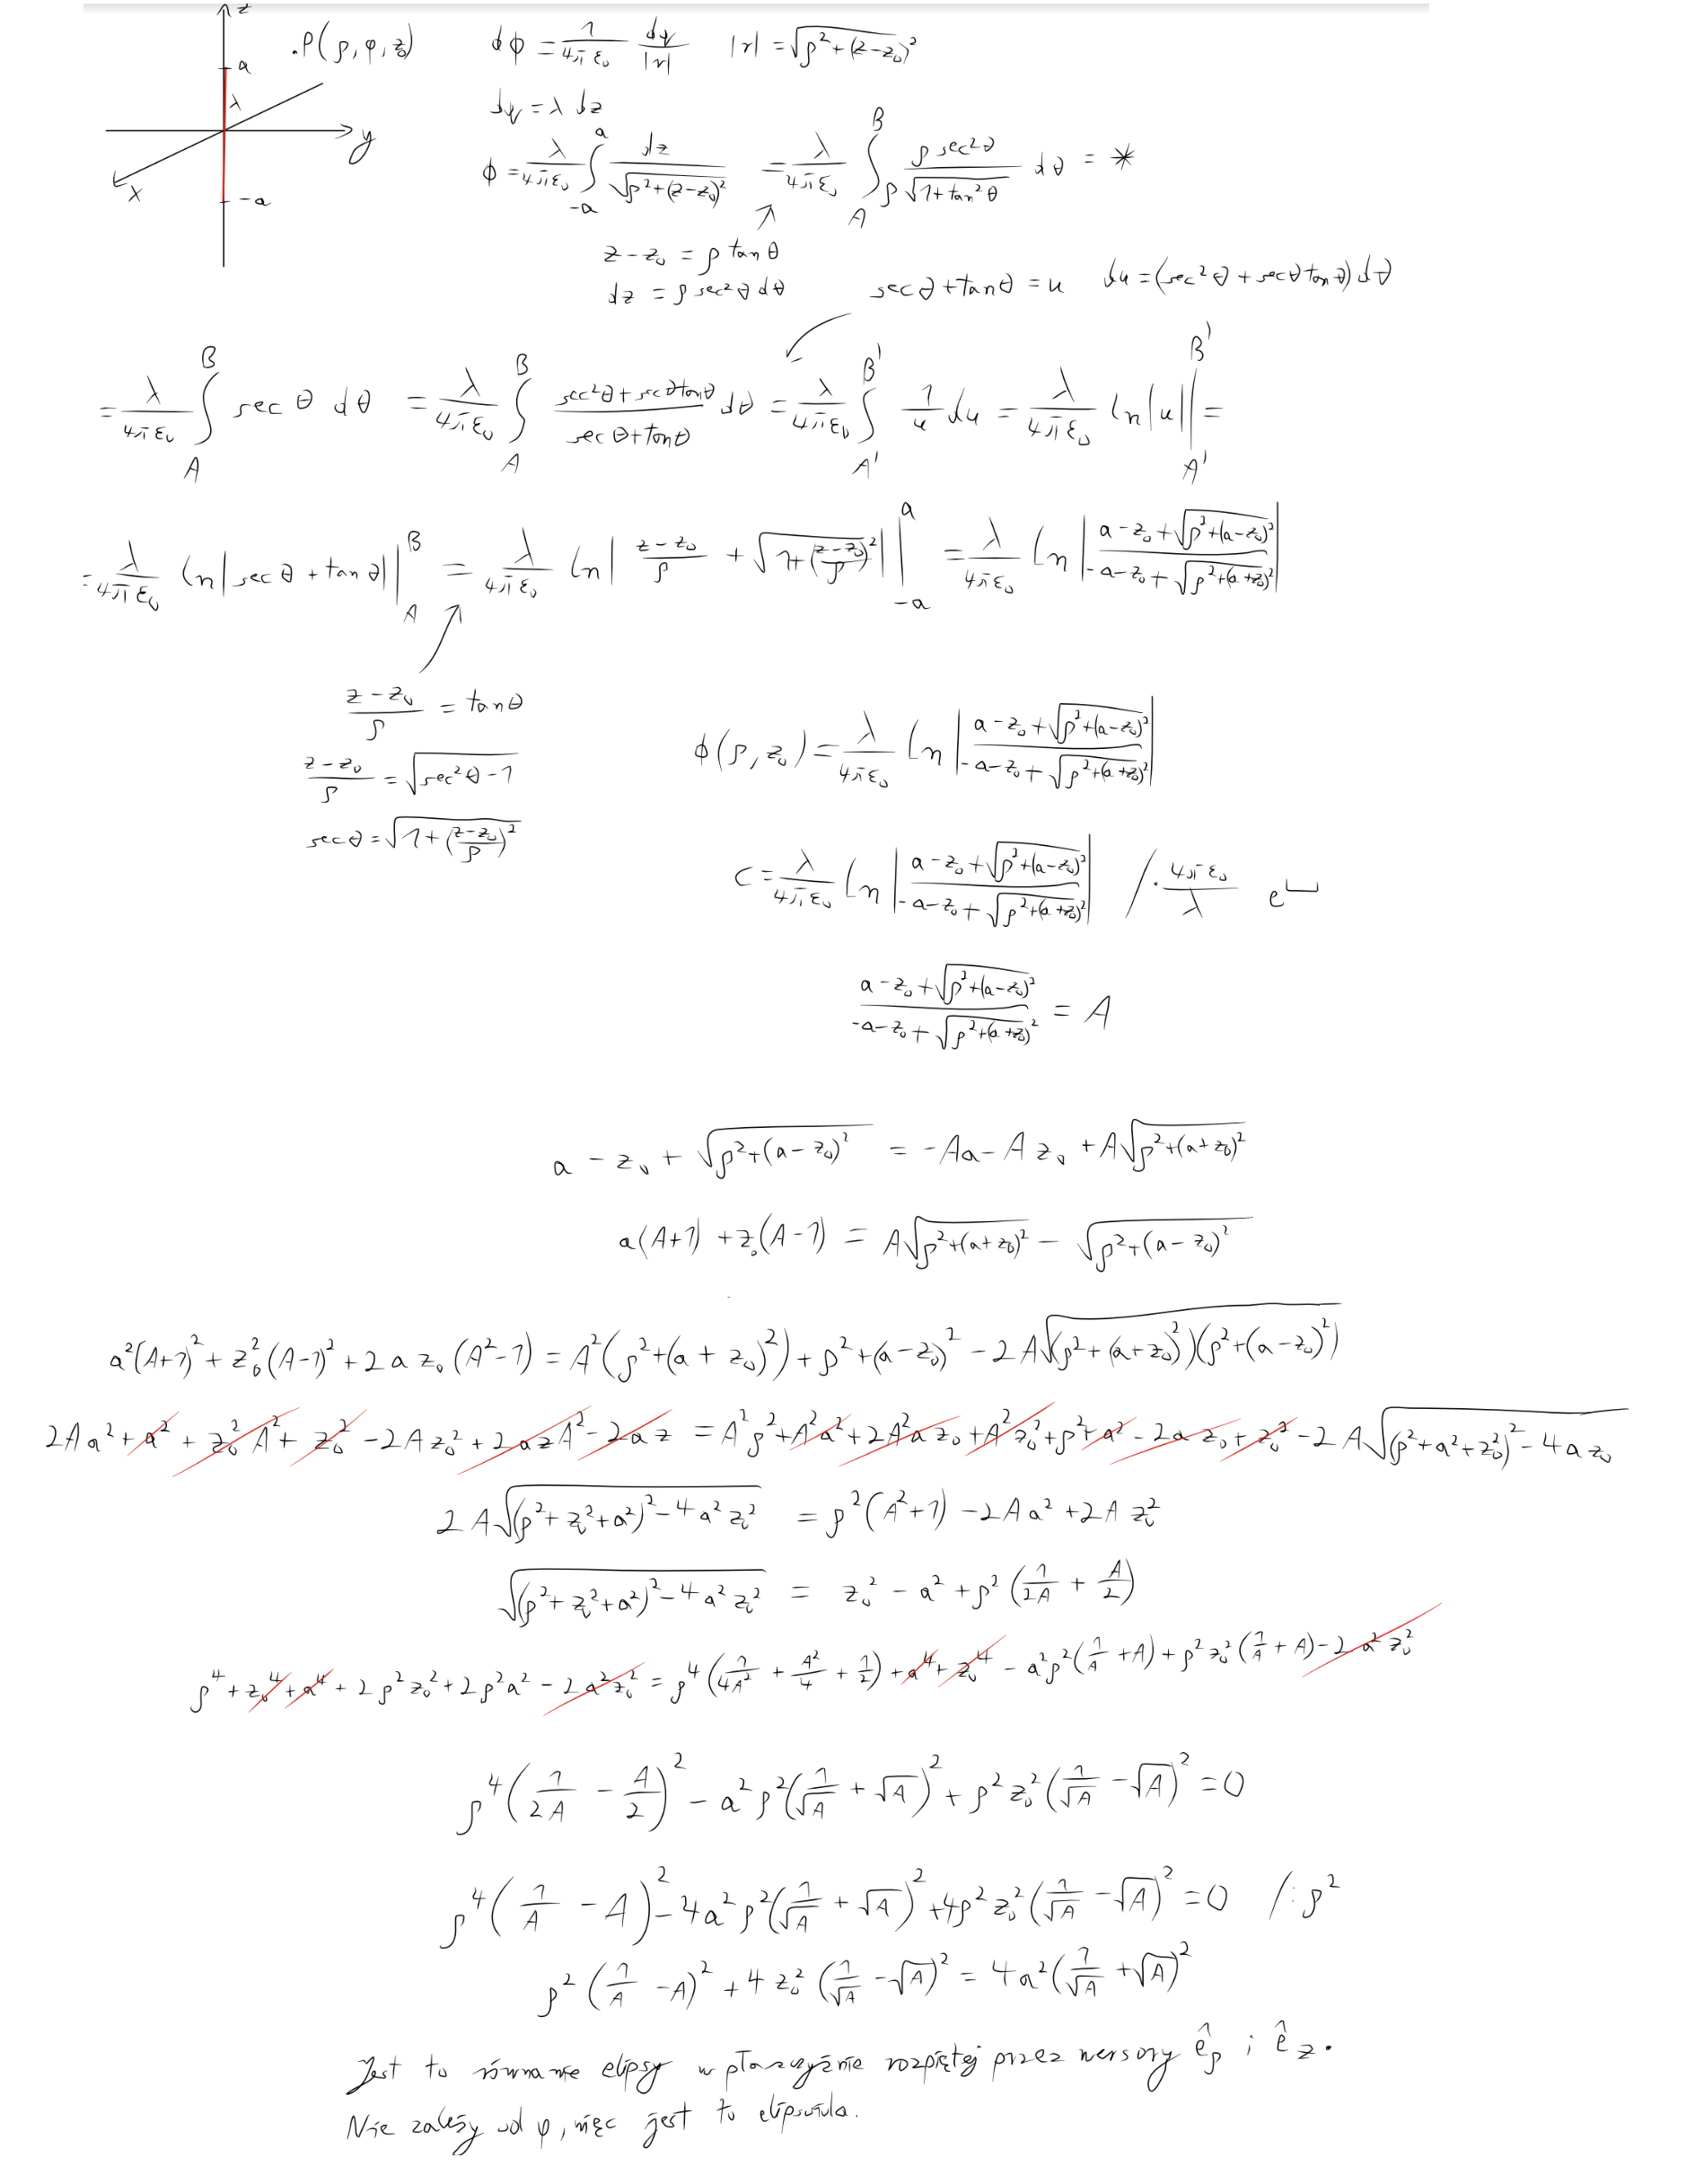 z
.P(ρ, φ, z₀)
dϕ = 1/(4πε₀) dq/|r|
|r| = √(ρ²+(z-z₀)²)
a
λ
y
x
-a
dq = λ dz
ϕ = λ/(4πε₀) ∫_{-a}^{a} dz/√(ρ²+(z-z₀)²) = λ/(4πε₀) ∫_A^B ρ sec²θ/(ρ√(1+tan²θ)) dθ = *
z-z₀ = ρ tanθ
dz = ρ sec²θ dθ
secθ+tanθ = u
du = (sec²θ + secθ tanθ) dθ
= λ/(4πε₀) ∫_A^B sec θ dθ = λ/(4πε₀) ∫_A^B (sec²θ + secθtanθ)/(secθ+tanθ) dθ = λ/(4πε₀) ∫_{A'}^{B'} 1/u du = λ/(4πε₀) ln|u| |_{A'}^{B'} =
= λ/(4πε₀) ln|secθ + tanθ| |_A^B = λ/(4πε₀) ln| (z-z₀)/ρ + √(1+((z-z₀)/ρ)²) | |_{-a}^{a} = λ/(4πε₀) ln| (a-z₀+√(ρ²+(a-z₀)²))/(-a-z₀+√(ρ²+(a+z₀)²)) |
(z-z₀)/ρ = tanθ
(z-z₀)/ρ = √(sec²θ-1)
secθ = √(1+((z-z₀)/ρ)²)
ϕ(ρ, z₀) = λ/(4πε₀) ln| (a-z₀+√(ρ²+(a-z₀)²))/(-a-z₀+√(ρ²+(a+z₀)²)) |
C = λ/(4πε₀) ln| (a-z₀+√(ρ²+(a-z₀)²))/(-a-z₀+√(ρ²+(a+z₀)²)) | /· 4πε₀/λ e^␣
(a-z₀+√(ρ²+(a-z₀)²))/(-a-z₀+√(ρ²+(a+z₀)²)) = A
a - z₀ + √(ρ²+(a-z₀)²) = -Aa - A z₀ + A√(ρ²+(a+z₀)²)
a(A+1) + z₀(A-1) = A√(ρ²+(a+z₀)²) - √(ρ²+(a-z₀)²)
a²(A+1)² + z₀²(A-1)² + 2 a z₀ (A²-1) = A²(ρ²+(a+z₀)²) + ρ²+(a-z₀)² - 2A√((ρ²+(a+z₀)²)(ρ²+(a-z₀)²))
2Aa² + a² + z₀²A² + z₀² - 2Az₀² + 2azA² - 2az = A²ρ² + A²a² + 2A²az₀ + A²z₀² + ρ² + a² - 2az₀ + z₀² - 2A√((ρ²+a²+z₀²)² - 4az₀
2A√((ρ²+z₀²+a²)² - 4a²z₀²) = ρ²(A²+1) - 2Aa² + 2Az₀²
√((ρ²+z₀²+a²)² - 4a²z₀²) = z₀² - a² + ρ²(1/(2A) + A/2)
ρ⁴ + z₀⁴ + a⁴ + 2ρ²z₀² + 2ρ²a² - 2a²z₀² = ρ⁴(1/(4A²) + A²/4 + 1/2) + a⁴ + z₀⁴ - a²ρ²(1/A + A) + ρ²z₀²(1/A + A) - 2a²z₀²
ρ⁴(1/(2A) - A/2)² - a²ρ²(1/√A + √A)² + ρ²z₀²(1/√A - √A)² = 0
ρ⁴(1/A - A)² - 4a²ρ²(1/√A + √A)² + 4ρ²z₀²(1/√A - √A)² = 0 /:ρ²
ρ²(1/A - A)² + 4z₀²(1/√A - √A)² = 4a²(1/√A + √A)²
Jest to równanie elipsy w płaszczyźnie rozpiętej przez wersory ê_ρ i ê_z.
Nie zależy od φ, więc jest to elipsoida.